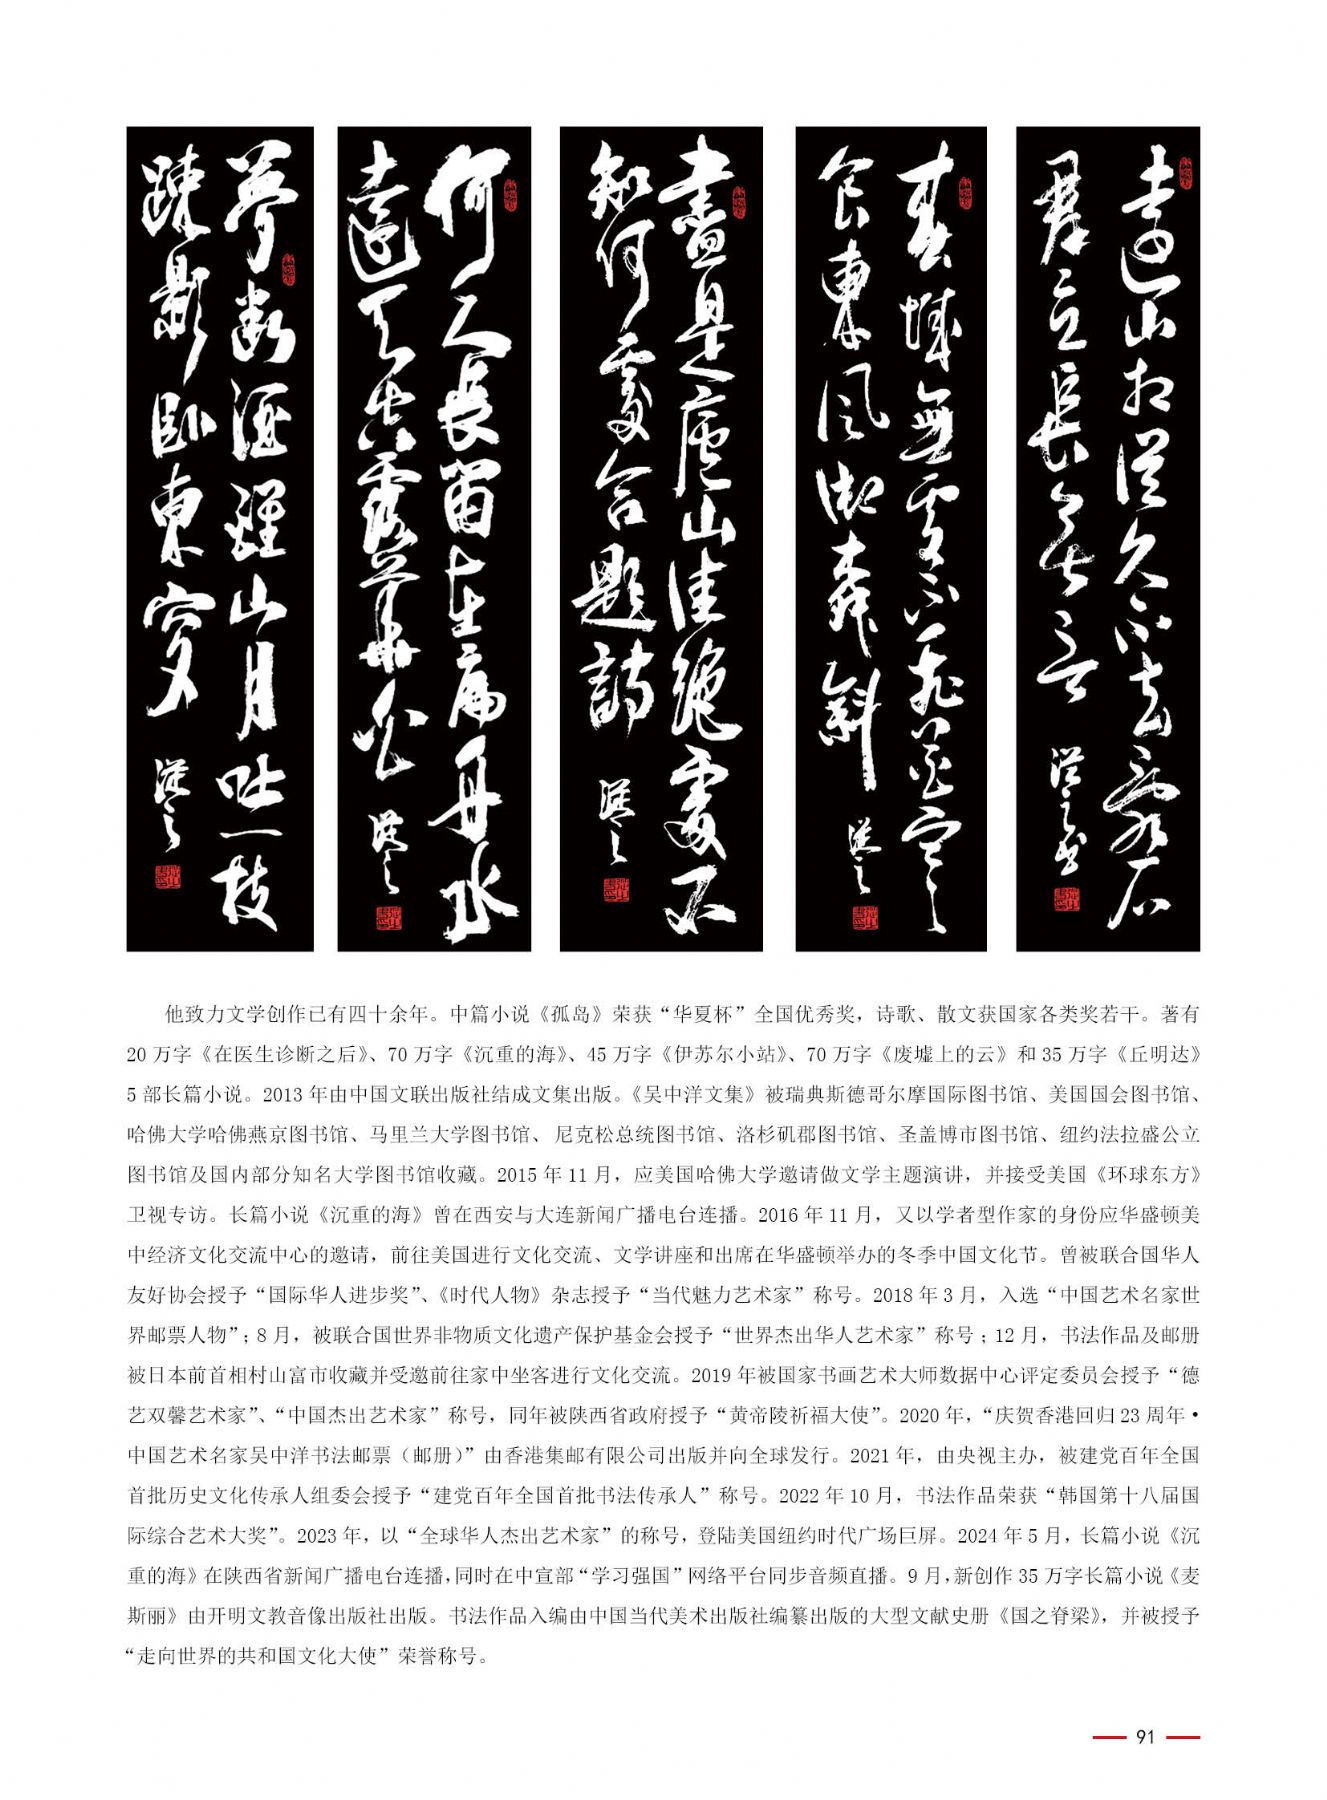 山相從久不去石
群立長無言
春城無處不飛花寒
食東風御柳斜
盡是廬山佳絕處不
知何處合題詩
何人長留在扁舟水
遠天華白
夢斷酒醒山月吐一枝
疎影卧東窗
他致力文学创作已有四十余年。中篇小说《孤岛》荣获“华夏杯”全国优秀奖，诗歌、散文获国家各类奖若干。著有
20 万字《在医生诊断之后》、70 万字《沉重的海》、45 万字《伊苏尔小站》、70 万字《废墟上的云》和 35 万字《丘明达》
5 部长篇小说。2013 年由中国文联出版社结成文集出版。《吴中洋文集》被瑞典斯德哥尔摩国际图书馆、美国国会图书馆、
哈佛大学哈佛燕京图书馆、马里兰大学图书馆、尼克松总统图书馆、洛杉矶郡图书馆、圣盖博市图书馆、纽约法拉盛公立
图书馆及国内部分知名大学图书馆收藏。2015 年 11 月，应美国哈佛大学邀请做文学主题演讲，并接受美国《环球东方》
卫视专访。长篇小说《沉重的海》曾在西安与大连新闻广播电台连播。2016 年 11 月，又以学者型作家的身份应华盛顿美
中经济文化交流中心的邀请，前往美国进行文化交流、文学讲座和出席在华盛顿举办的冬季中国文化节。曾被联合国华人
友好协会授予“国际华人进步奖”、《时代人物》杂志授予“当代魅力艺术家”称号。2018 年 3 月，入选“中国艺术名家世
界邮票人物”；8 月，被联合国世界非物质文化遗产保护基金会授予“世界杰出华人艺术家”称号；12 月，书法作品及邮册
被日本前首相村山富市收藏并受邀前往家中坐客进行文化交流。2019 年被国家书画艺术大师数据中心评定委员会授予“德
艺双馨艺术家”、“中国杰出艺术家”称号，同年被陕西省政府授予“黄帝陵祈福大使”。2020 年，“庆贺香港回归 23 周年·
中国艺术名家吴中洋书法邮票（邮册）”由香港集邮有限公司出版并向全球发行。2021 年，由央视主办，被建党百年全国
首批历史文化传承人组委会授予“建党百年全国首批书法传承人”称号。2022 年 10 月，书法作品荣获“韩国第十八届国
际综合艺术大奖”。2023 年，以“全球华人杰出艺术家”的称号，登陆美国纽约时代广场巨屏。2024 年 5 月，长篇小说《沉
重的海》在陕西省新闻广播电台连播，同时在中宣部“学习强国”网络平台同步音频直播。9 月，新创作 35 万字长篇小说《麦
斯丽》由开明文教音像出版社出版。书法作品入编由中国当代美术出版社编纂出版的大型文献史册《国之脊梁》，并被授予
“走向世界的共和国文化大使”荣誉称号。
91